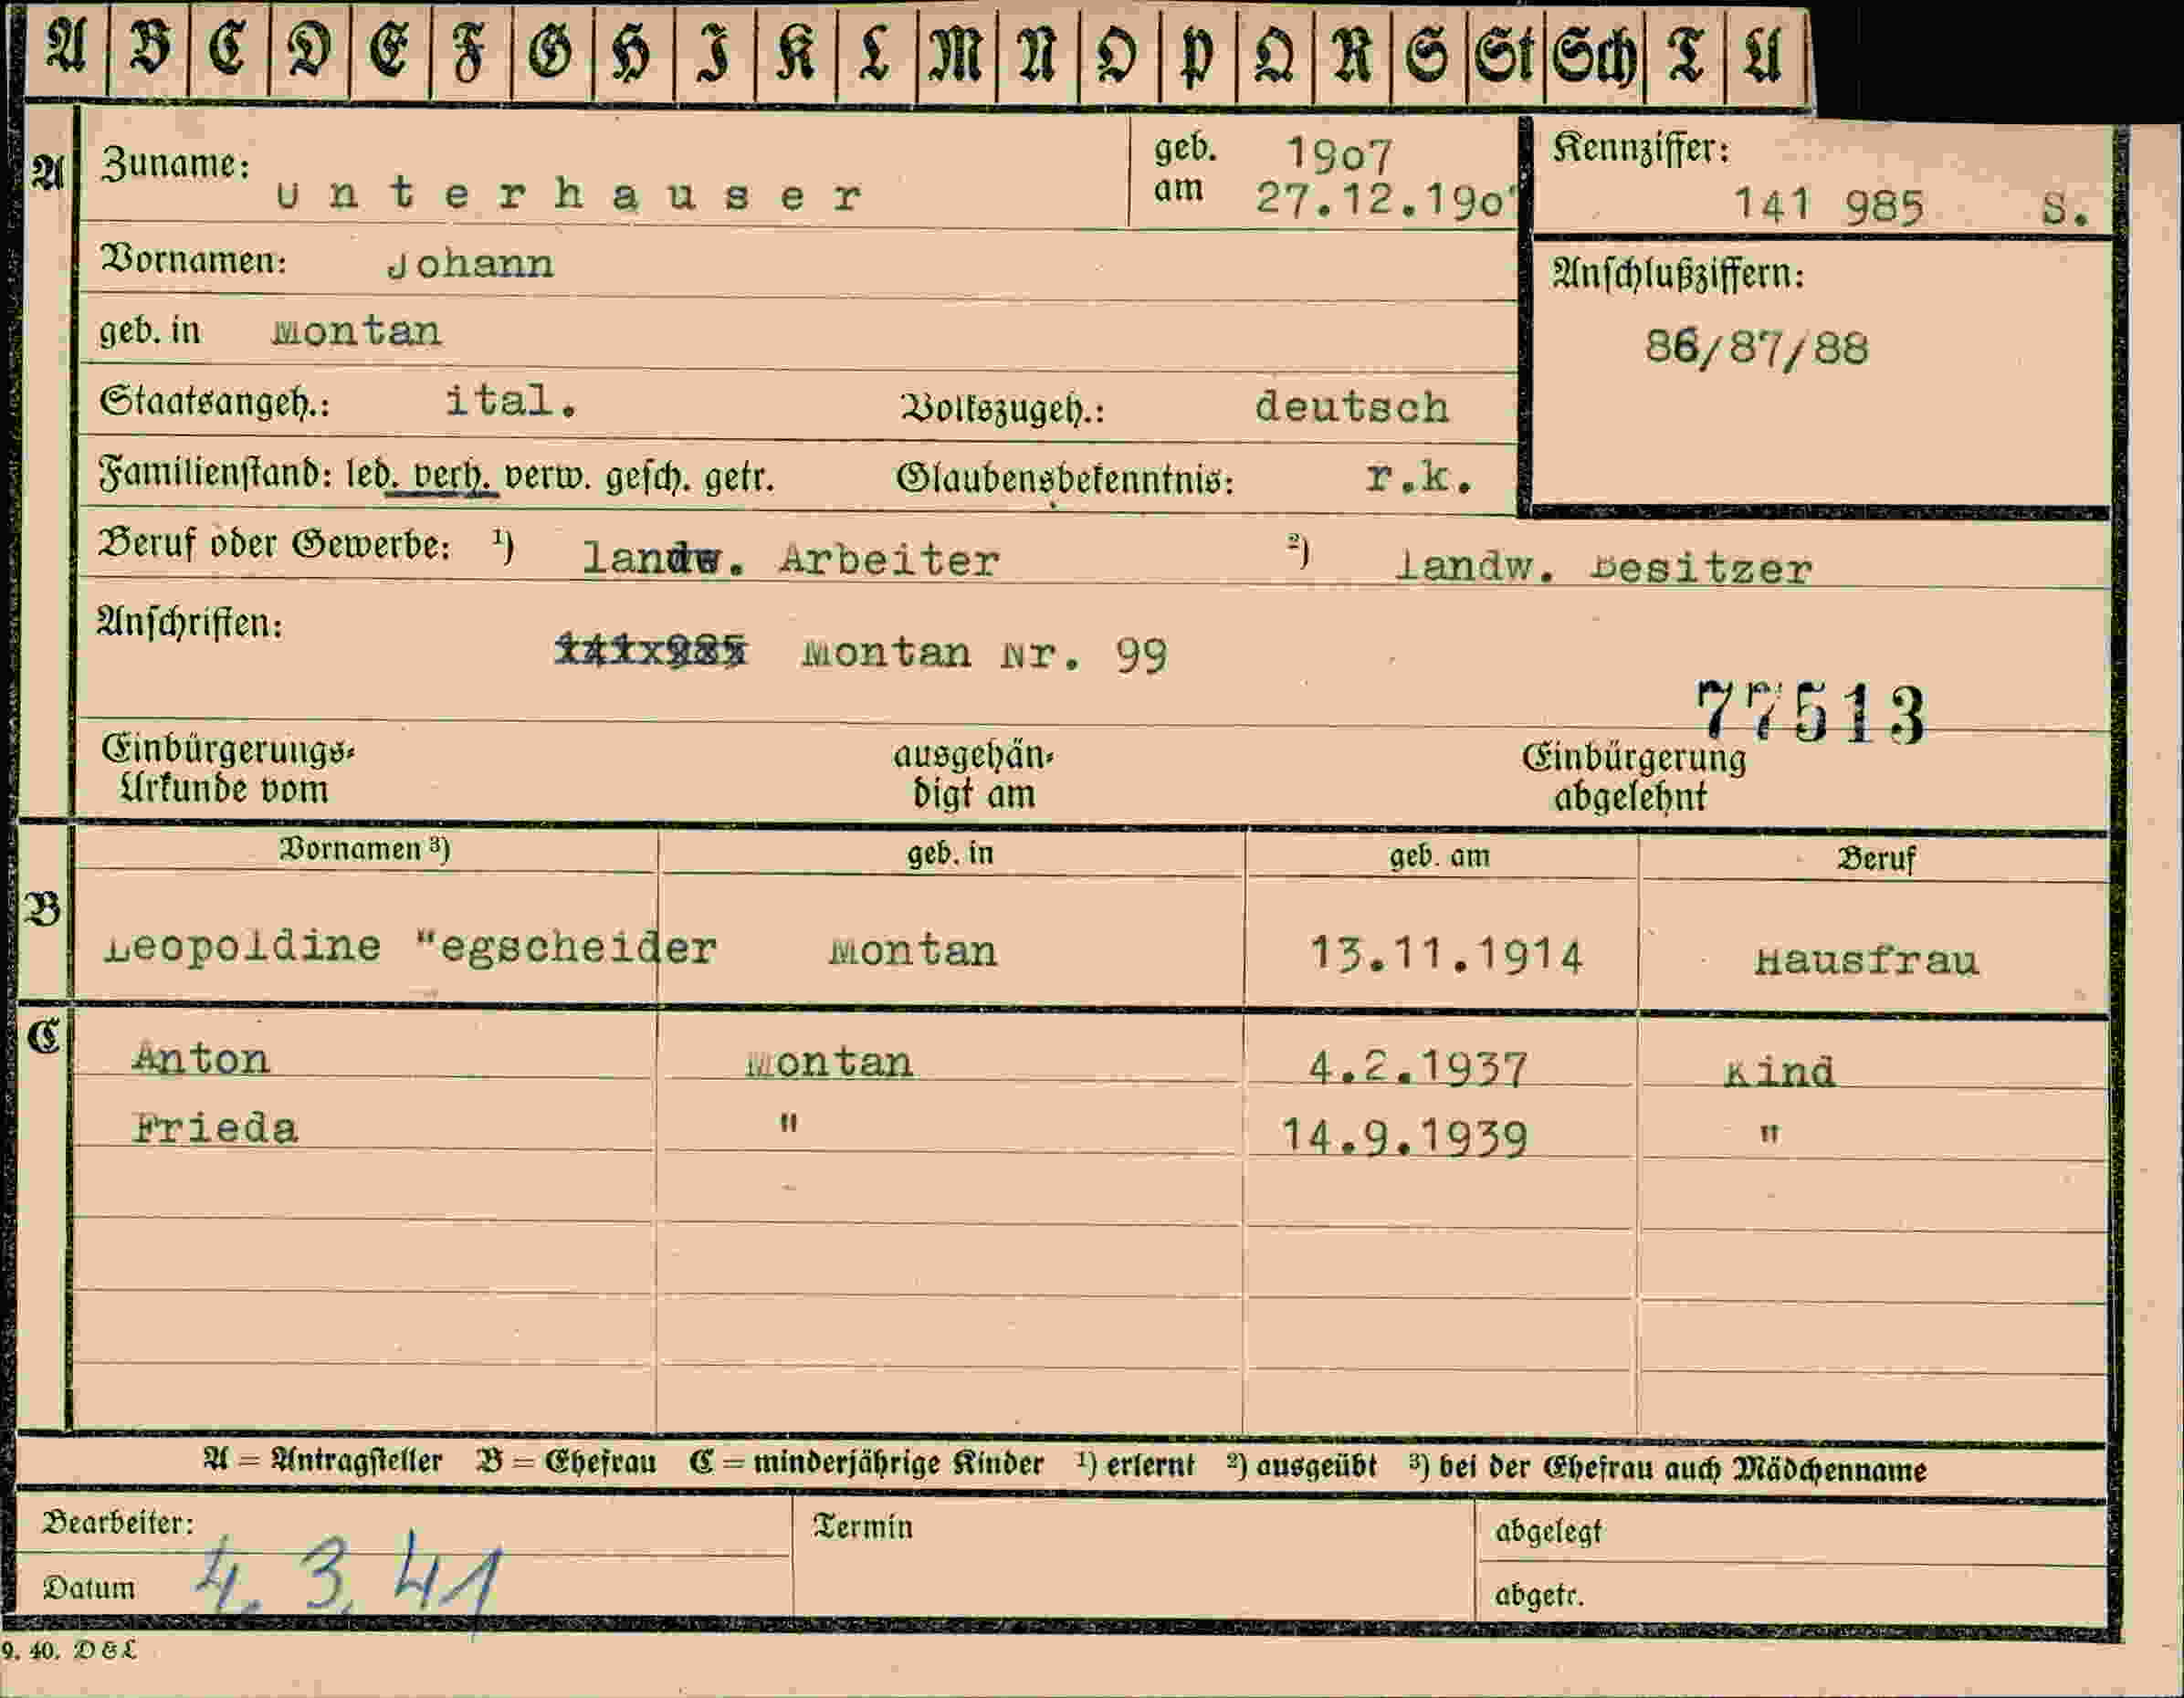 A B C D E F G H I K L M N O P Q R S St Sch T U
A Zuname: Unterhauser geb. am 1907 27.12.190 Kennziffer: 141 985 S.
Vornamen: Johann Anschlußziffern:
geb. in Montan 86/87/88
Staatsangeh.: ital. Volkszugeh.: deutsch
Familienstand: led. verh. verw. gesch. getr. Glaubensbekenntnis: r.k.
Beruf oder Gewerbe: 1) landw. Arbeiter 2) landw. Besitzer
Anschriften: Montan Nr. 99
77513
Einbürgerungs- ausgehän- Einbürgerung
Urkunde vom digt am abgelehnt
Vornamen 3) geb. in geb. am Beruf
B Leopoldine "egscheider Montan 13.11.1914 Hausfrau
C Anton Montan 4.2.1937 Kind
Frieda " 14.9.1939 "
A = Antragsteller B = Ehefrau C = minderjährige Kinder 1) erlernt 2) ausgeübt 3) bei der Ehefrau auch Mädchenname
Bearbeiter: Termin abgelegt
Datum 4. 3. 41 abgetr.
9. 40. D&L